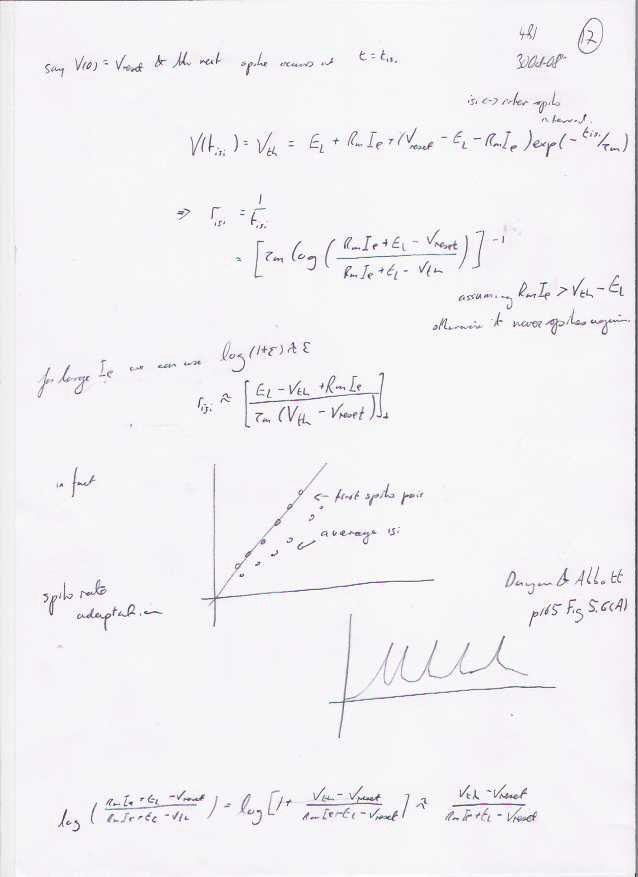 17
30 Oct 08
say V(0) = Vreset & the next spike occurs at t = tisi.
isi <-> inter spike
interval.
V(tisi) = Vth = EL + RmIe + (Vreset - EL - RmIe) exp(-tisi/τm)
=> risi = 1/tisi
= [τm log ((RmIe + EL - Vreset)/(RmIe + EL - Vth))]^-1
assuming RmIe > Vth - EL
otherwise it never spikes again.
for large Ie we can use log(1+ε) ≈ ε
risi ≈ [(EL - Vth + RmIe)/(τm (Vth - Vreset))]+
in fact
<- first spike pair
average isi
spike rate
adaptation
Dayan & Abbott
p165 Fig 5.6(A)
log ((RmIe + EL - Vreset)/(RmIe + EL - Vth)) = log [1 + (Vth - Vreset)/(RmIe + EL - Vreset)] ≈ (Vth - Vreset)/(RmIe + EL - Vreset)